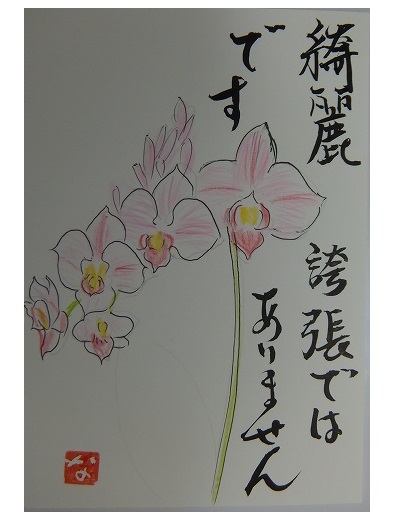 綺麗
です
誇張では
ありません